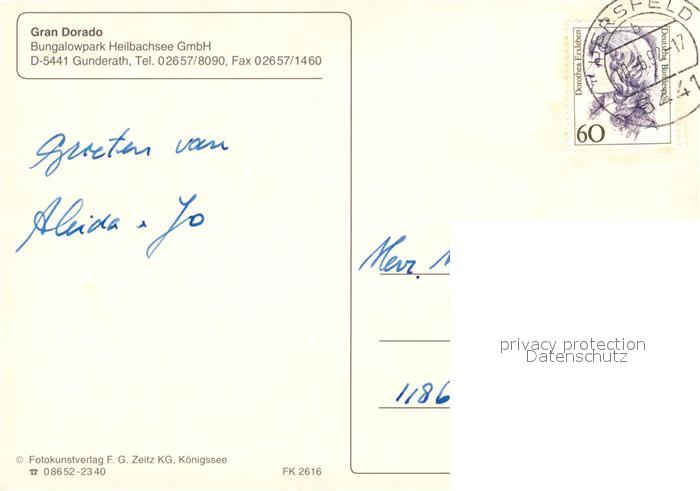 Gran Dorado
Bungalowpark Heilbachsee GmbH
D-5441 Gunderath, Tel. 02657/8090, Fax 02657/1460
Dorothea Erxleben
Deutsche Bundespost
60
Groeten van
Aleida + Jo
Herr.
1186
privacy protection
Datenschutz
© Fotokunstverlag F. G. Zeitz KG, Königssee
☎ 08652-2340
FK 2616